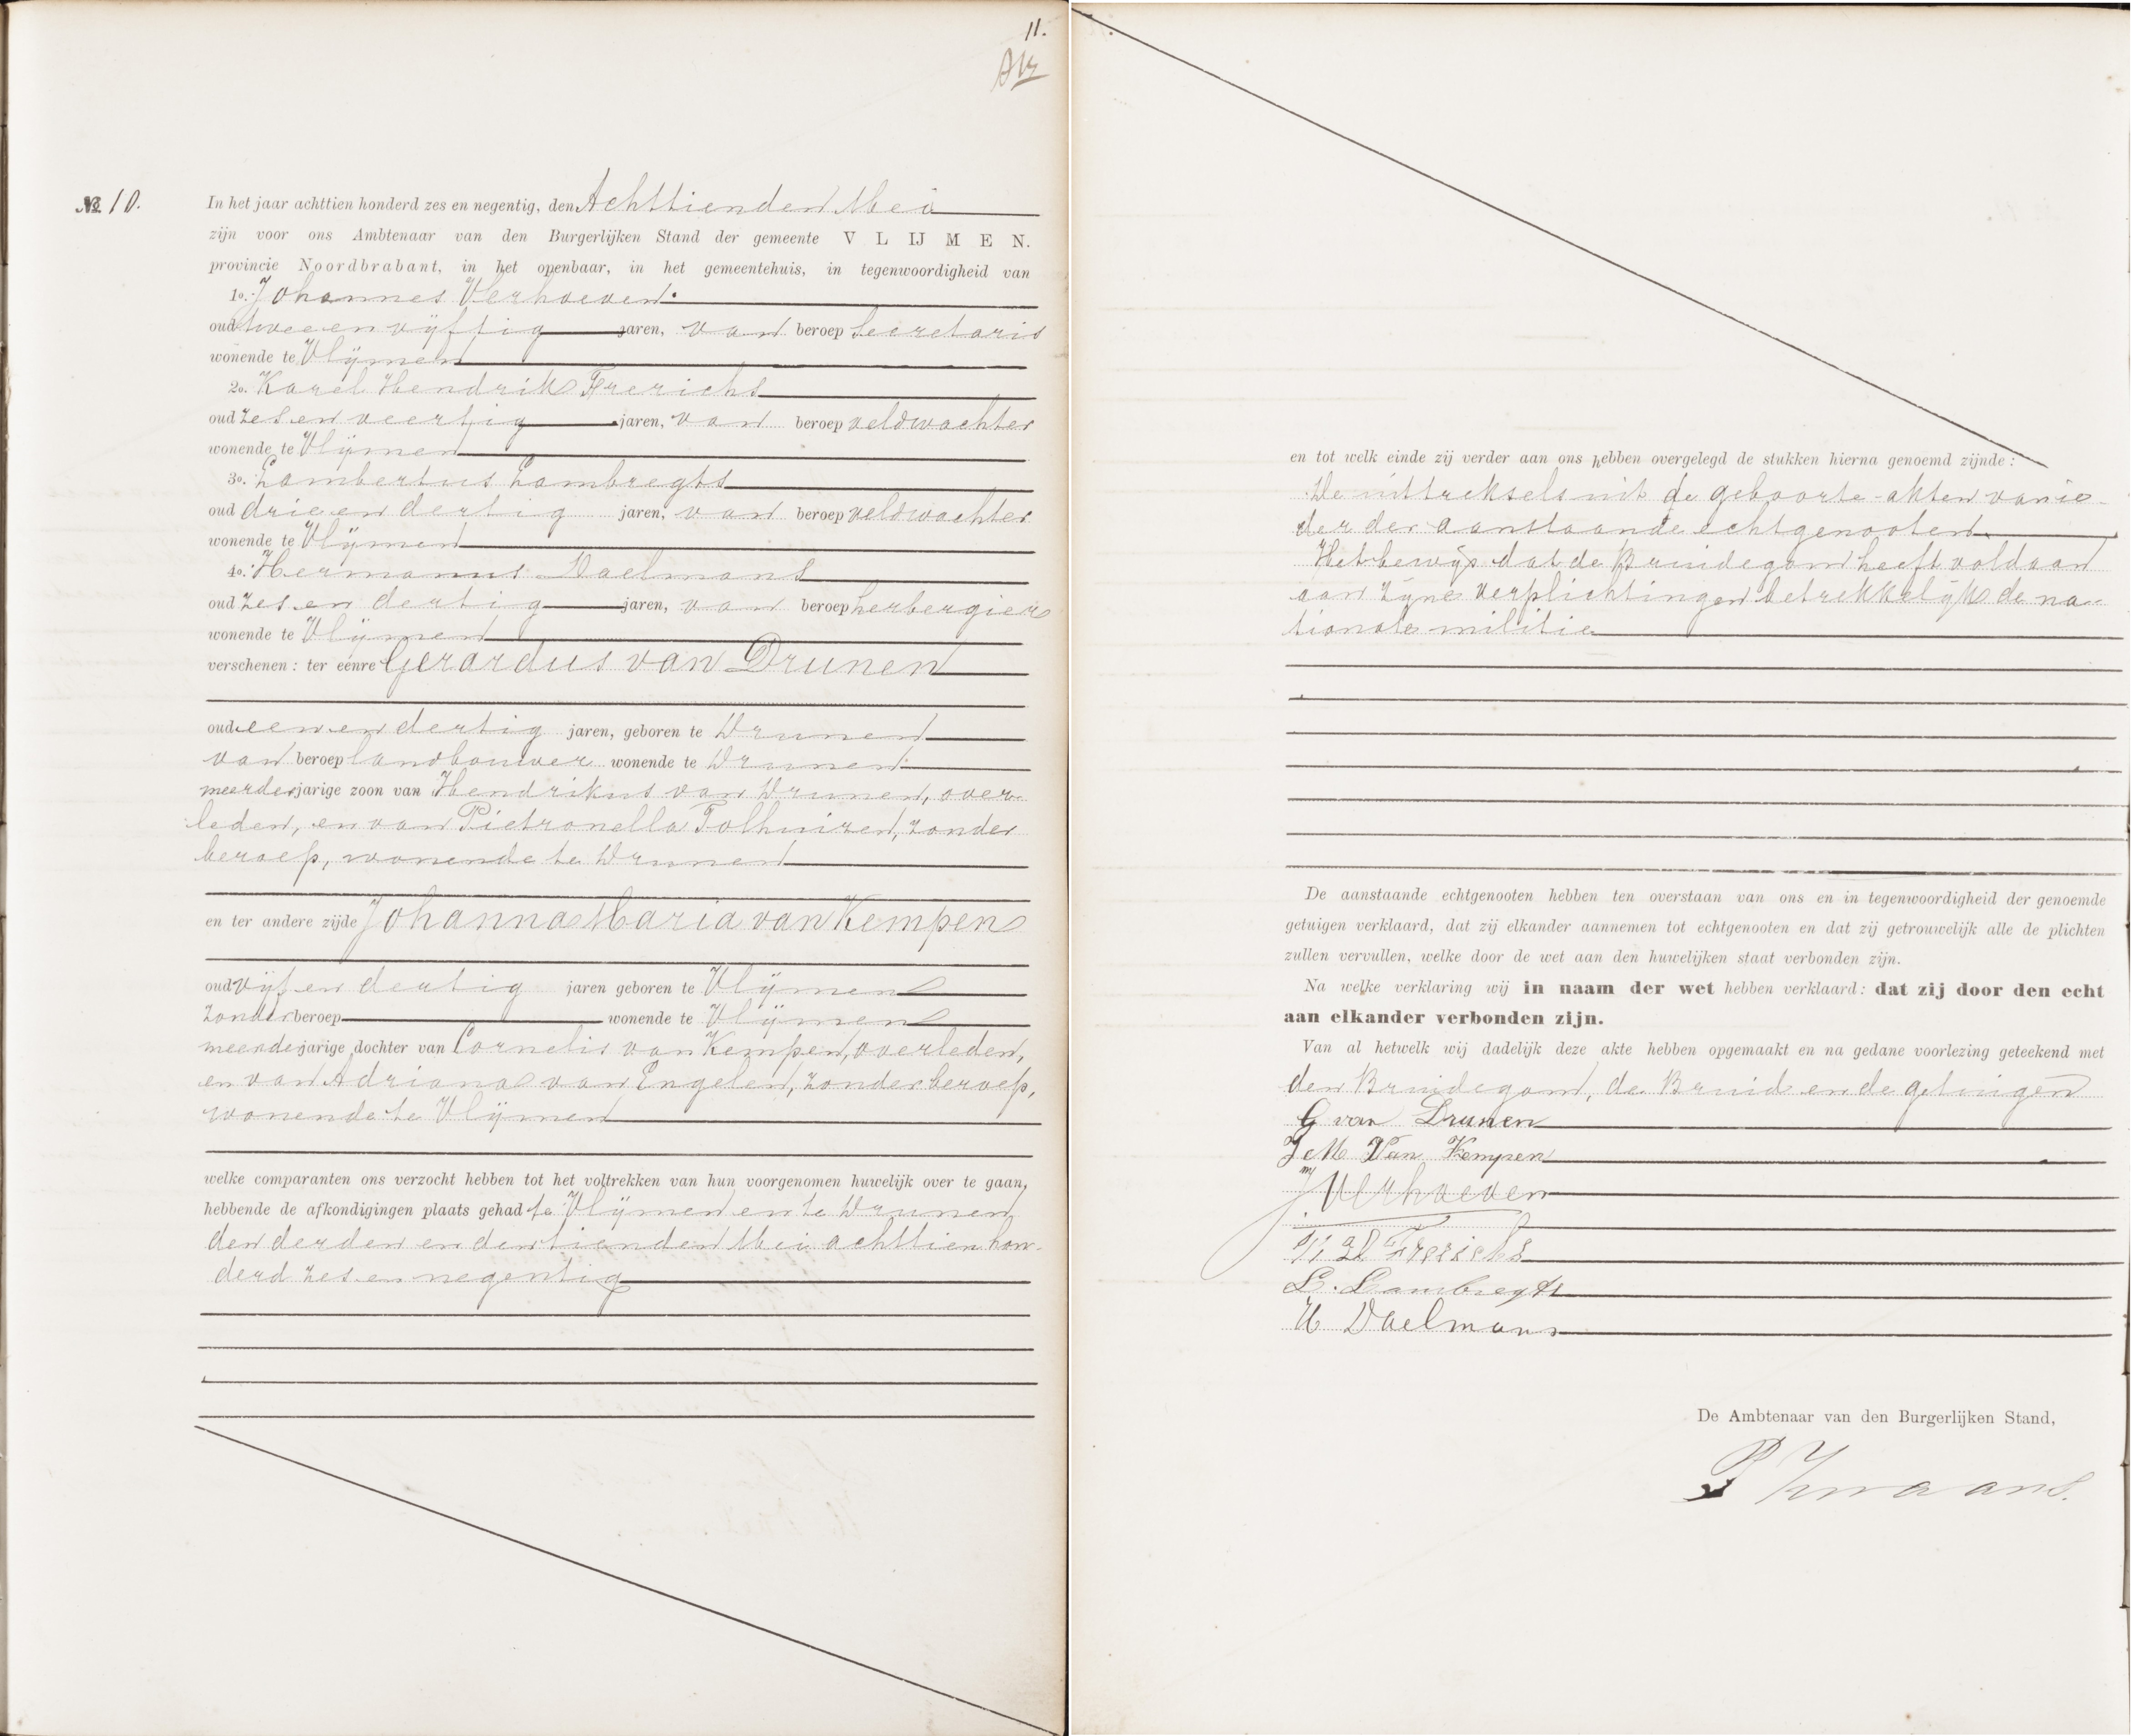 11.
No. 10.
In het jaar achttien honderd zes en negentig, den Achttienden Mei
zijn voor ons Ambtenaar van den Burgerlijken Stand der gemeente VLIJMEN.
provincie Noordbrabant, in het openbaar, in het gemeentehuis, in tegenwoordigheid van
1o. Johannes Verhoeven.
oud twee en vijftig jaren, van beroep Secretaris
wonende te Vlijmen
2o. Karel Hendrik Frerichs
oud zes en veertig jaren, van beroep veldwachter
wonende te Vlijmen
3o. Lambertus Lambregts
oud drie en dertig jaren, van beroep veldwachter
wonende te Vlijmen
4o. Hermanus Daelmans
oud zes en dertig jaren, van beroep herbergier
wonende te Vlijmen
verschenen: ter eenre Gerardus van Drunen
oud een en dertig jaren, geboren te Drunen
van beroep landbouwer wonende te Drunen
meerderjarige zoon van Hendrikus van Drunen, over-
leden, en van Pietronella Tolhuizen, zonder
beroep, wonende te Drunen
en ter andere zijde Johanna Maria van Kempen
oud vijf en dertig jaren geboren te Vlijmen
zonder beroep wonende te Vlijmen
meerderjarige dochter van Cornelis van Kempen, overleden,
en van Adriana van Engelen, zonder beroep,
wonende te Vlijmen
welke comparanten ons verzocht hebben tot het voltrekken van hun voorgenomen huwelijk over te gaan,
hebbende de afkondigingen plaats gehad te Vlijmen en te Drunen
den derden en den tienden Mei achttien hon-
derd zes en negentig
en tot welk einde zij verder aan ons hebben overgelegd de stukken hierna genoemd zijnde:
De uittreksels uit de geboorte-akten van ie-
der der aanstaande echtgenooten
Het bewijs dat de Bruidegom heeft voldaan
aan zijne verplichtingen betrekkelijk de na-
tionale militie
De aanstaande echtgenooten hebben ten overstaan van ons en in tegenwoordigheid der genoemde
getuigen verklaard, dat zij elkander aannemen tot echtgenooten en dat zij getrouwelijk alle de plichten
zullen vervullen, welke door de wet aan den huwelijken staat verbonden zijn.
Na welke verklaring wij in naam der wet hebben verklaard: dat zij door den echt
aan elkander verbonden zijn.
Van al hetwelk wij dadelijk deze akte hebben opgemaakt en na gedane voorlezing geteekend met
den Bruidegom, de Bruid en de getuigen
G van Drunen
J M Van Kempen
J Verhoeven
K H Frerichs
L. Lambregts
H Daelmans
De Ambtenaar van den Burgerlijken Stand,
P Zwaans.